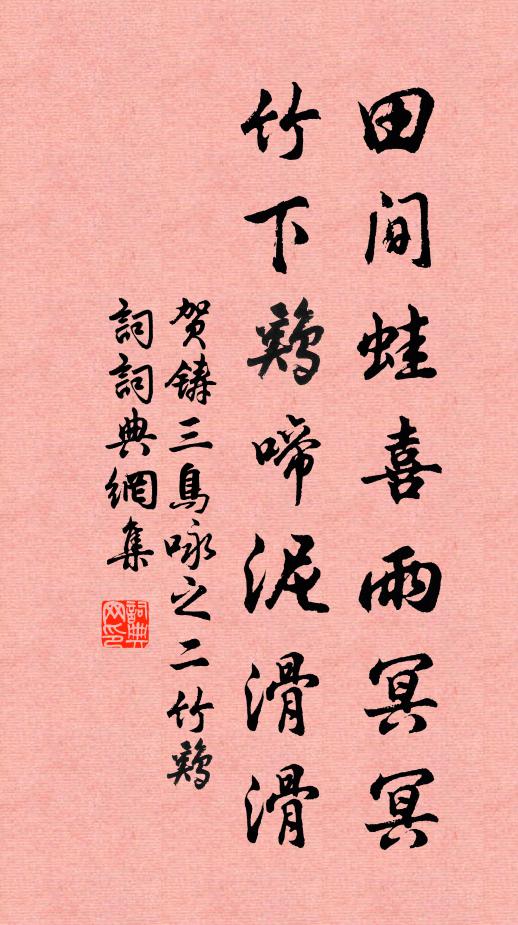 田间蛙喜雨冥冥
竹下鸡啼泥滑滑
贺铸三鳥咏之二竹鸡
詞詞典網集
詞典网印